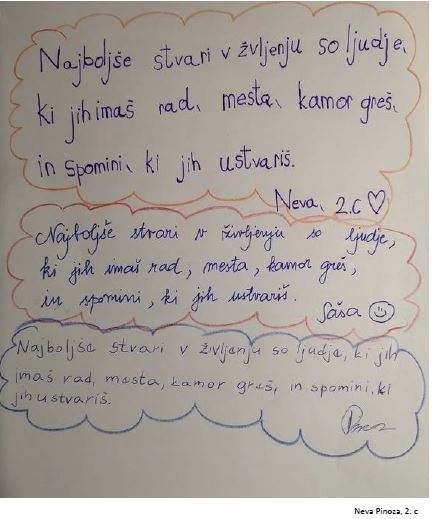 Najboljše stvari v življenju so ljudje,
ki jih imaš rad, mesta, kamor greš,
in spomini, ki jih ustvariš.
Neva, 2.c ♡
Najboljše stvari v življenju so ljudje,
ki jih imaš rad, mesta, kamor greš,
in spomini, ki jih ustvariš.
Saša ☺
Najboljše stvari v življenju so ljudje, ki jih
imaš rad, mesta, kamor greš, in spomini, ki
jih ustvariš.
Neva Pinoza, 2. c